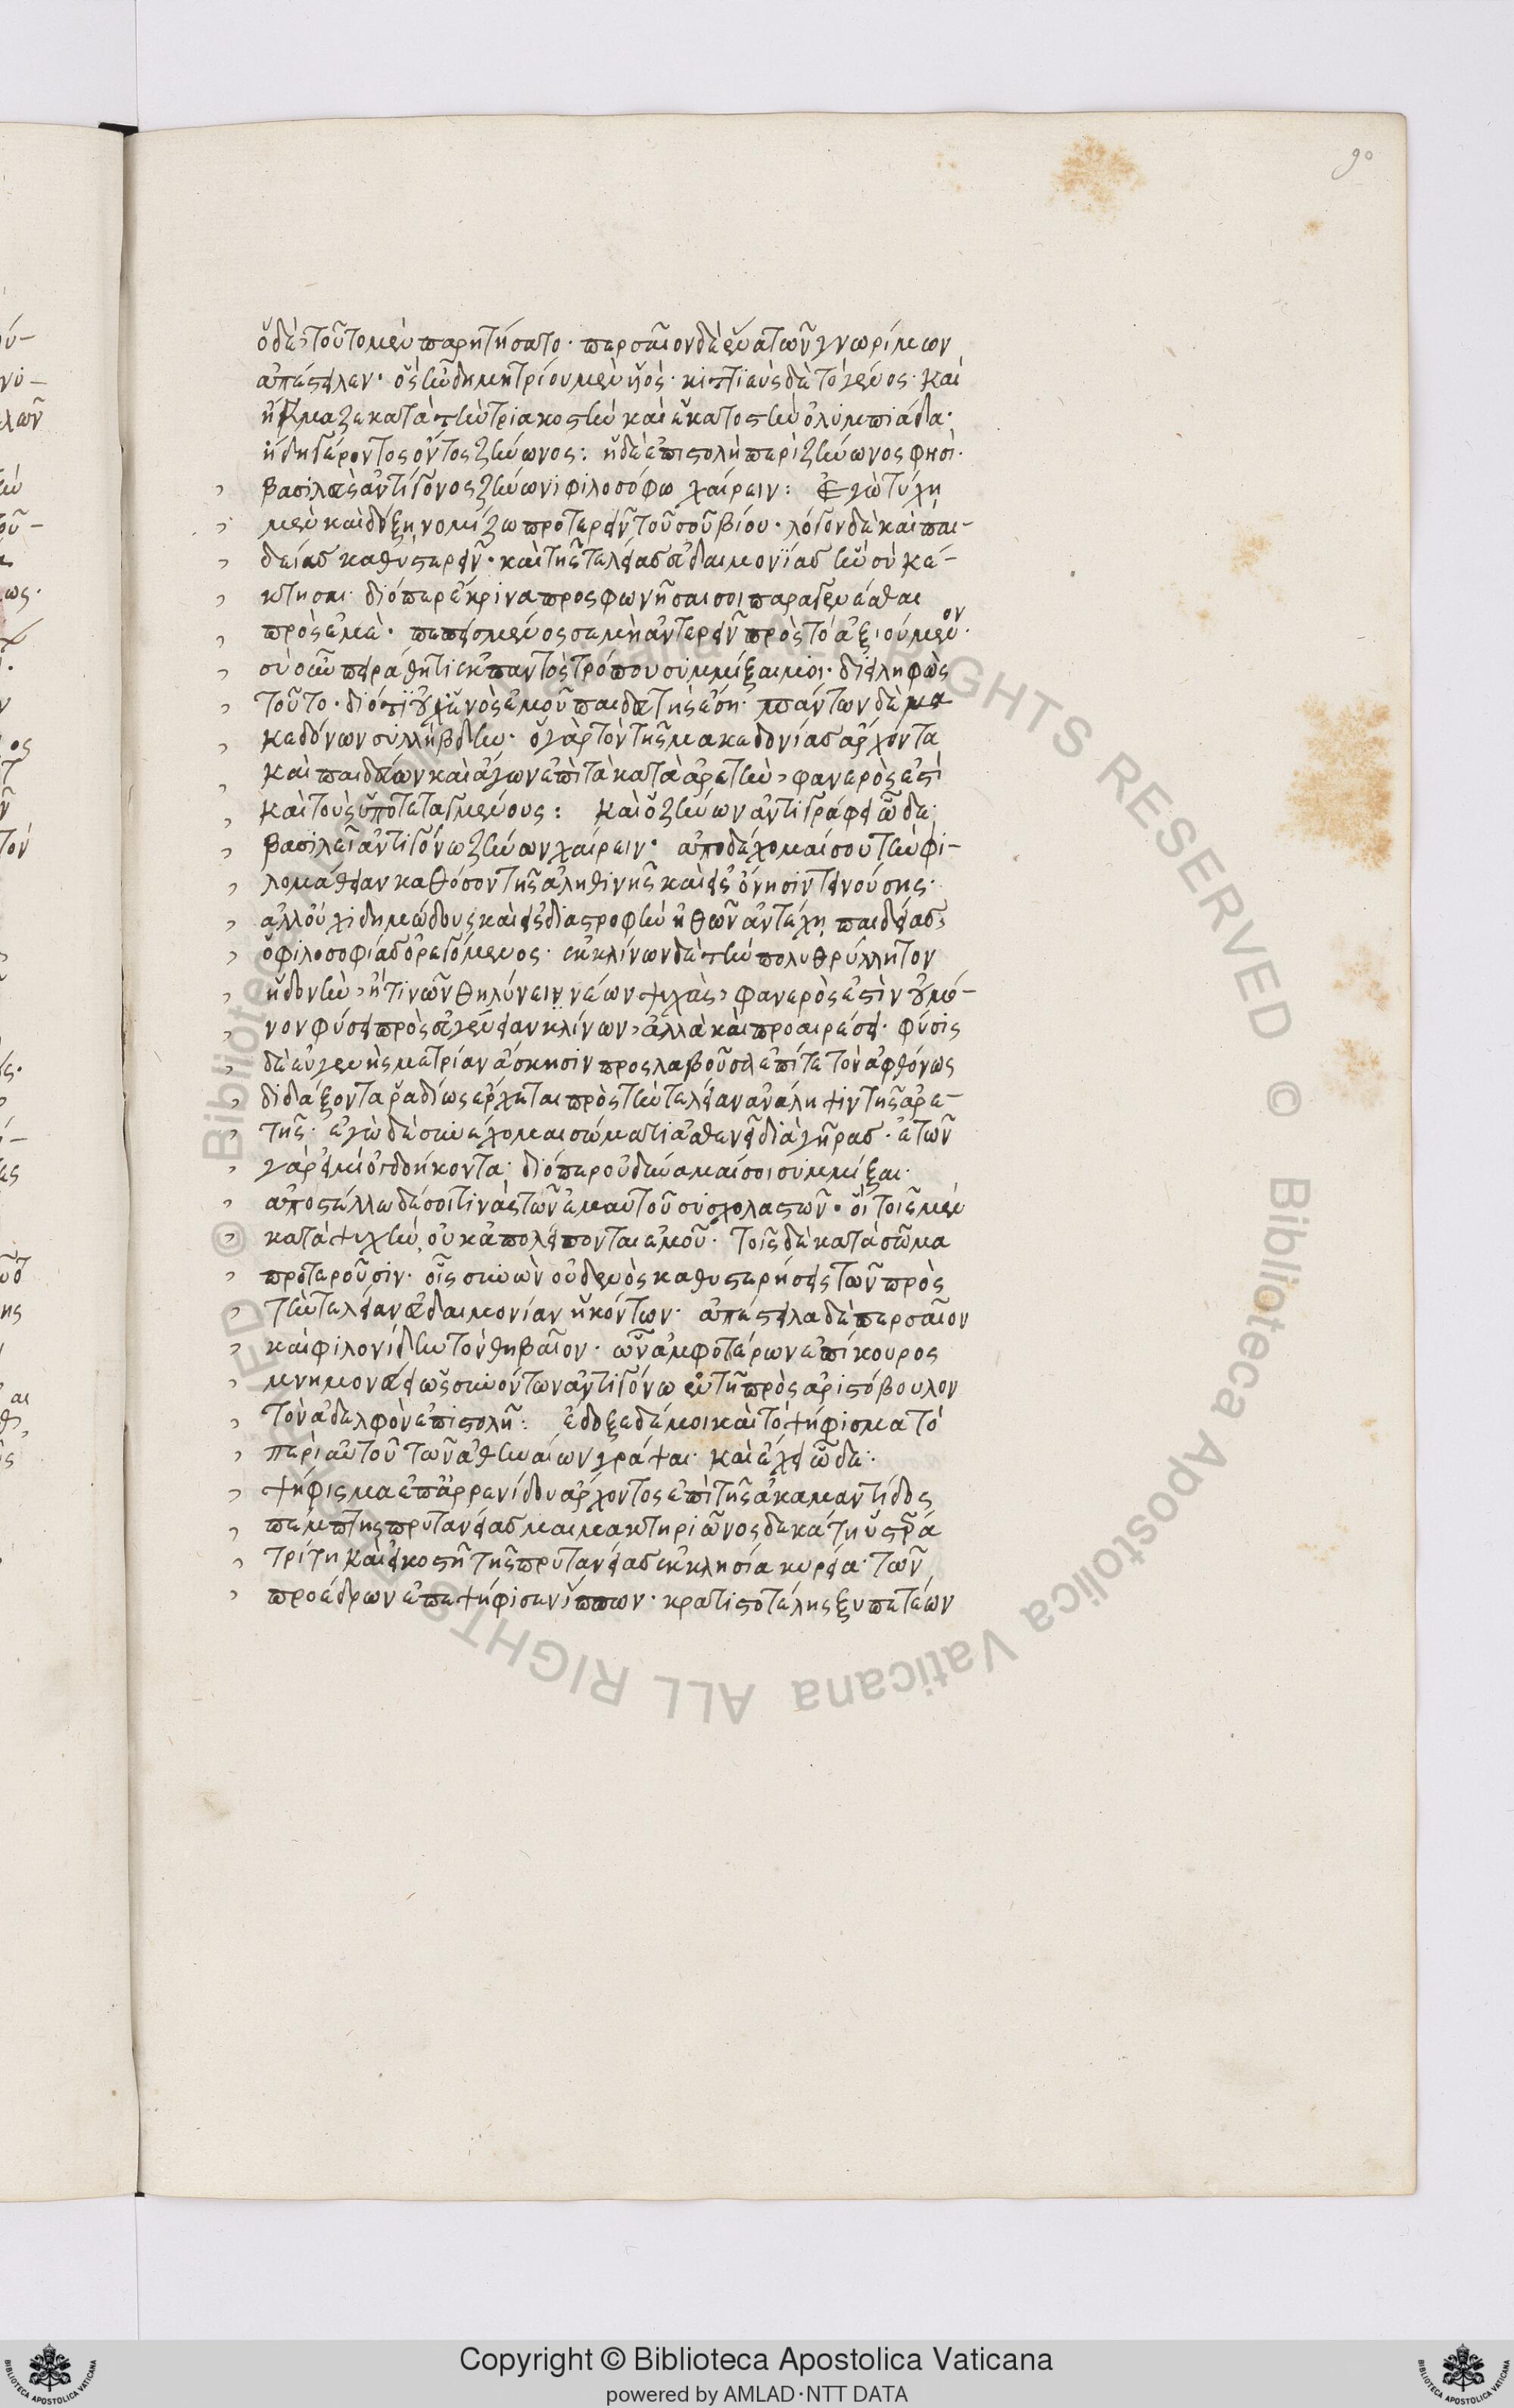 90
ὁ δὲ, τοῦτο μὲν παρητήσατο· περσαῖον δὲ ἕνα τῶν γνωρίμων
ἀπέστειλεν· ὃς ἦν δημητρίου μὲν υἱός· κιττιεὺς δὲ τὸ γένος· καὶ
ἤκμαζε κατὰ τὴν τριακοστὴν καὶ ἑκατοστὴν ὀλυμπιάδα·
ἤδη γέροντος ὄντος ζήνωνος: ἡ δὲ ἐπιστολὴ περὶ ζήνωνος φησί·
βασιλεὺς ἀντίγονος ζήνωνι φιλοσόφω χαίρειν: Ἐγὼ τύχη
μὲν καὶ δόξη νομίζω προτερεῖν τοῦ σοῦ βίου· λόγου δὲ καὶ παι-
δείας καθυστερεῖν· καὶ τῆς τελείας εὐδαιμονίας ἣν σὺ κέ-
κτησαι· διόπερ ἔκρινα προσφωνῆσαι σοι παραγενέσθαι
πρὸς ἐμὲ· πεπεισμένος σε μὴ ἀντερεῖν πρὸς τὸ ἀξιούμενον·
σὺ οὖν πειράθητι ἐκ παντὸς τρόπου συμμίξαι μοι· διειληφὼς
τοῦτο· διότι οὐχ ἑνὸς ἐμοῦ παιδευτὴς ἔση· πάντων δὲ μα
κεδόνων συλλήβδην· ὁ γὰρ τὸν τῆς μακεδονίας ἄρχοντα
καὶ παιδεύων καὶ ἄγων ἐπὶ τὰ κατὰ ἀρετὴν, φανερὸς ἐστὶ
καὶ τοὺς ὑποτεταγμένους: καὶ ὁ ζήνων ἀντιγράφει ὧδε·
βασιλεῖ ἀντιγόνω ζήνων χαίρειν· ἀποδέχομαί σου τὴν φι-
λομάθειαν καθόσον τῆς ἀληθινῆς καὶ εἰς ὄνησιν τεινούσης·
ἀλλ' οὐχὶ δημώδους καὶ εἰς διαστροφὴν ἠθῶν ἀντέχη παιδείας,
ὁ φιλοσοφίας ὀρεγόμενος· ἐκκλίνων δὲ τὴν πολυθρύλλητον
ἡδονὴν, ἥ τινῶν θηλύνειν νέων ψυχὰς, φανερὸς ἐστὶν οὐ μό-
νον φύσει πρὸς εὐγένειαν κλίνων, ἀλλὰ καὶ προαιρέσει· φύσις
δὲ εὐγενὴς μετρίαν ἄσκησιν προσλαβοῦσα ἔτι τε τὸν ἀφθόνως
διδάξοντα ῥαδίως ἔρχεται πρὸς τὴν τελείαν ἀνάληψιν τῆς ἀρε-
τῆς· ἐγὼ δὲ συνέχομαι σώματι ἀσθενεῖ διὰ γῆρας· ἐτῶν
γάρ εἰμι ὀγδοήκοντα· διόπερ οὐ δύναμαί σοι συμμίξαι·
ἀποστέλλω δέ σοι τινὰς τῶν ἐμαυτοῦ συσχολαστῶν· οἳ τοῖς μὲν
κατὰ ψυχὴν, οὐκ ἀπολείπονται ἐμοῦ· τοῖς δὲ κατὰ σῶμα
προτεροῦσιν· οἷς συνὼν οὐδενὸς καθυστερήσεις τῶν πρὸς
τὴν τελείαν εὐδαιμονίαν ἡκόντων· ἀπέστειλα δὲ περσαῖον
καὶ φιλονίδην τὸν θηβαῖον· ὧν ἀμφοτέρων ἐπίκουρος
μνημονεύει ὡς συνόντων ἀντιγόνω ἐν τῆ πρὸς ἀριστόβουλον
τὸν ἀδελφὸν ἐπιστολῆ: ἔδοξε δέ μοι καὶ τὸ ψήφισμα τὸ
περὶ αὐτοῦ τῶν ἀθηναίων γράψαι· καὶ ἔχει ὧδε·
ψήφισμα ἐπ' ἀρρενίδου ἄρχοντος ἐπὶ τῆς ἀκαμαντίδος
πέμπτης πρυτανείας μαιμακτηριῶνος δεκάτη ὑστέρα
τρίτη καὶ εἰκοστῆ τῆς πρυτανείας ἐκκλησία κυρεία· τῶν
προέδρων ἐπεψήφισεν ἵππων· κρατιστοτέλης ξυπετέων
Copyright © Biblioteca Apostolica Vaticana
powered by AMLAD·NTT DATA